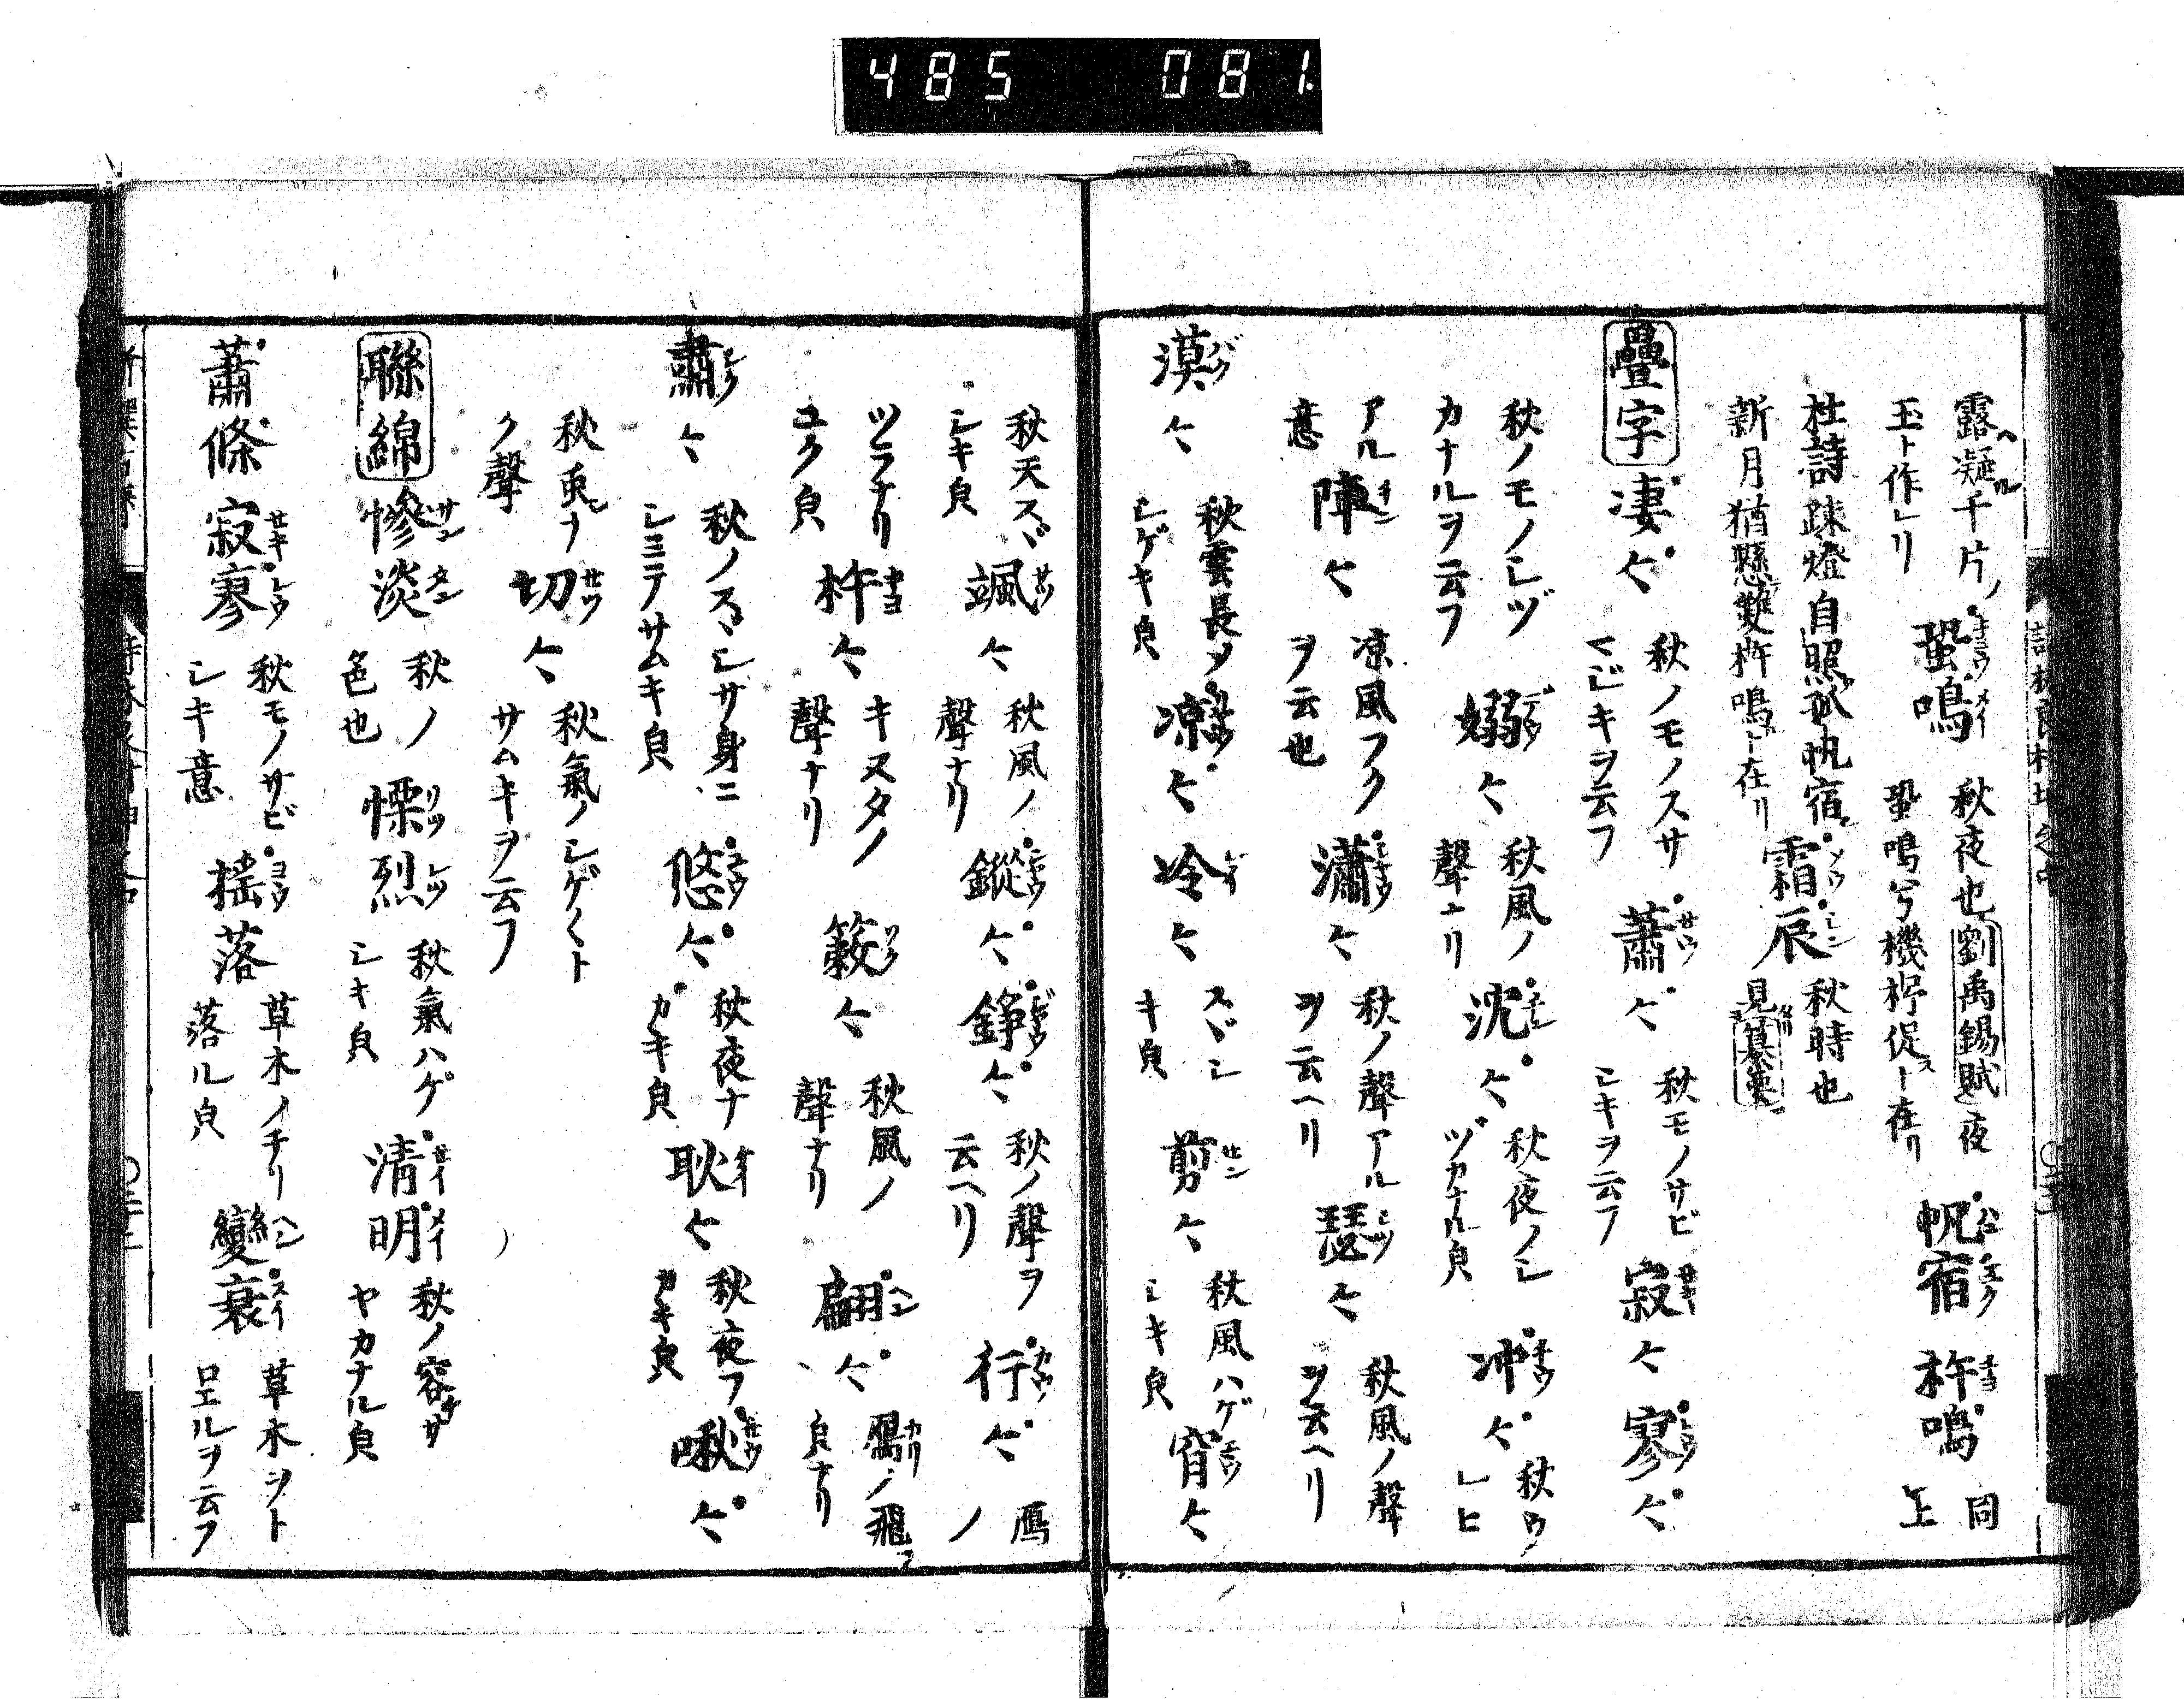 485 081
露凝ル千片ノ
玉ト作レリ
蛩鳴
秋夜也劉禹錫賦夜
蛩鳴兮機杼促ス在リ
帆宿
杵鳴
同上
杜詩疎燈自照孤帆宿
新月猶懸雙杵鳴ト在リ
霜辰
秋時也
見
疊字
凄々
秋ノモノスサ
マジキヲ云フ
蕭々
秋モノサビ
シキヲ云フ
寂々
寥々
秋ノモノシヅ
カナルヲ云フ
嫋々
秋風ノ
聲ナリ
沈々
秋夜ノシ
ヅカナル皃
冲々
秋ウ
レヒ
アル
意
陣々
凉風フク
ヲ云也
瀟々
秋ノ聲アル
ヲ云ヘリ
瑟々
秋風ノ聲
ヲ云ヘリ
漠々
秋雲長ノ
シゲキ皃
凉々
冷々
スヾシ
キ皃
剪々
秋風ハゲ
シキ皃
窅々
秋天スヾ
シキ皃
颯々
秋風ノ
聲ナリ
鏦々
錚々
秋ノ聲ヲ
云ヘリ
行々
鴈ノ
ツラナリ
ユク皃
杵々
キヌタノ
聲ナリ
簌々
秋風ノ
聲ナリ
翩々
鴈ノ飛フ
皃ナリ
肅々
秋ノスヾシサ身ニ
シミテサムキ皃
悠々
秋夜ナ
ガキ皃
耿々
秋夜フ
カキ皃
啾々
秋虫ナ
ク聲
切々
秋氣ノシゲ〱ト
サムキヲ云フ
聯綿
惨淡
秋ノ
色也
慄烈
秋氣ハゲ
シキ皃
清明
秋ノ容サ
ヤカナル皃
蕭條
寂寥
秋モノサビ
シキ意
揺落
草木ノチリ
落ル皃
變衰
草木ヲト
ロエルヲ云フ